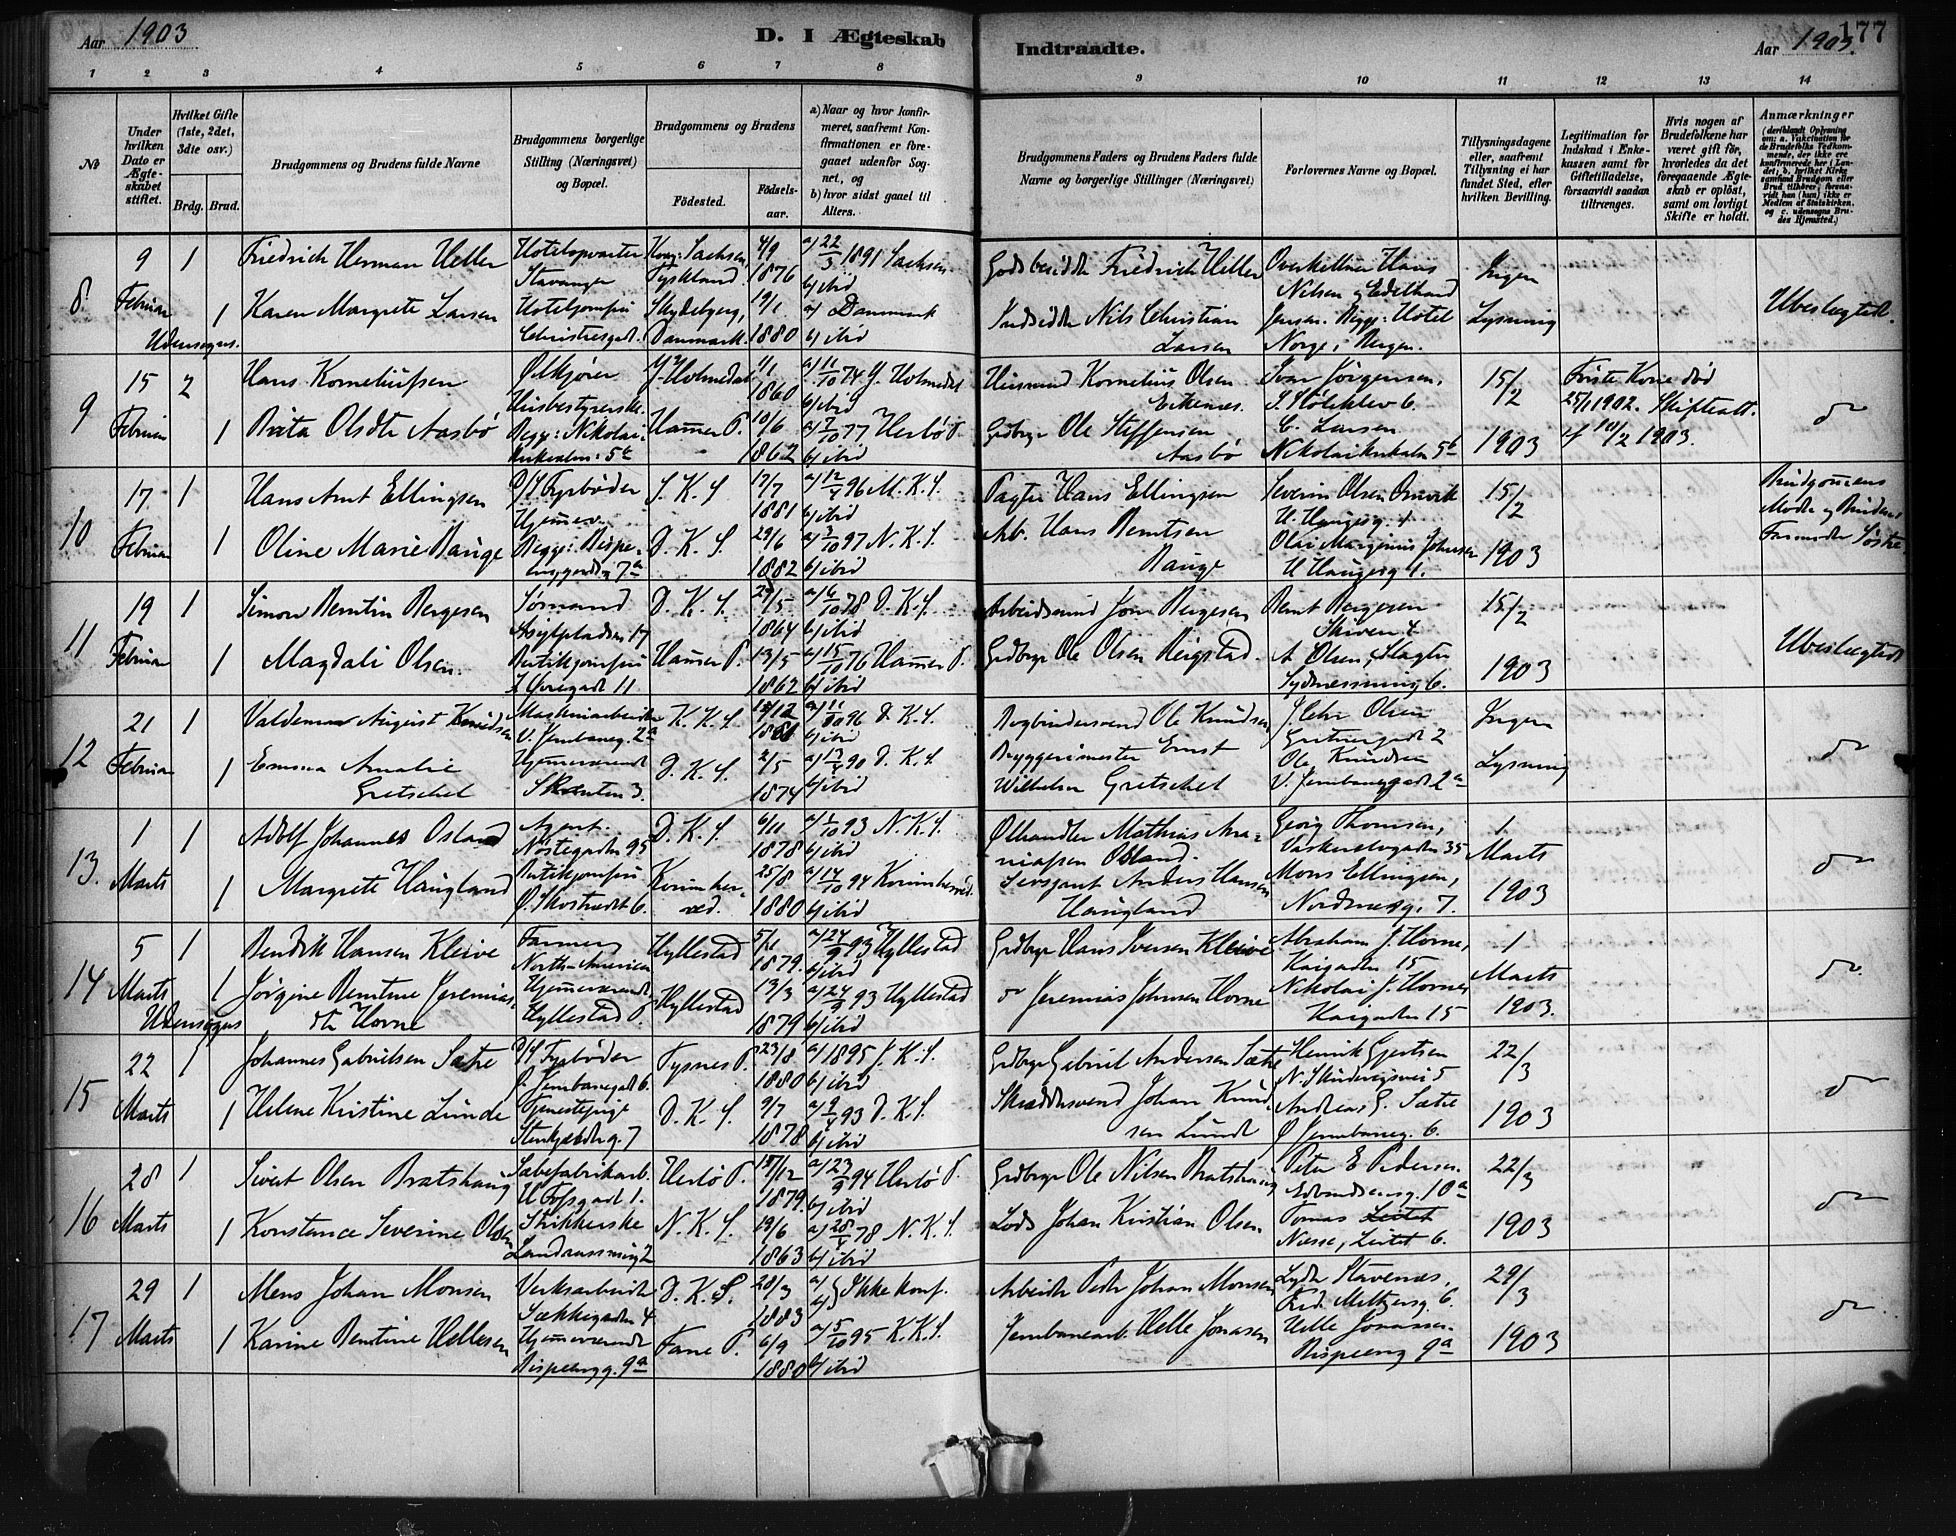 Aar 1903
D. I Ægteskab
Indtraadte.
Aar 1903.
177
1 2 3 4 5 6 7 8 9 10 11 12 13 14
№
Under hvilken Dato er Ægteskabet stiftet.
Hvilket Gifte (1ste, 2det, 3die osv.)
Brdg. Brud.
Brudgommens og Brudens fulde Navne
Brudgommens borgerlige Stilling (Næringsvei) og Bopæl.
Brudgommens og Brudens
Födested.
Födselsaar.
a) Naar og hvor konfirmeret, saafremt Konfirmationen er foregaaet udenfor Sognet, og
b) hvor sidst gaaet til Alters.
Brudgommens Faders og Brudens Faders fulde Navne og borgerlige Stillinger (Næringsvei)
Forlovernes Navne og Bopæl.
Tillysningsdagene eller, saafremt Tillysning ei har fundet Sted, efter hvilken Bevilling.
Legitimation for Indskud i Enkekassen samt for Giftetilladelse, forsaavidt saadan tiltrænges.
Hvis nogen af Brudefolkene har været gift för, hvorledes da det foregaaende Ægteskab er oplöst, samt om lovligt Skifte er holdt.
Anmærkninger
8
9 Februar
Udensogns.
1
1
Friedrich Herman Heller
Karen Margrete Larsen
Hotelopvarter
Stavanger
Hoteljomfru
Christiesgad.
Kong: Sachsen
Tyskland.
Danmark.
4/9 1876
19/1 1880
a) 22/3 1891 Sachsen
b) ibid
a) Danmark
b) ibid
Godsbesidder Friedrich Heller
Indsidder Nils Christian Larsen
Overkellner Hans Nilsen
Begge: Hotel Norge, Bergen.
Ingen Lysning
Ubeslægtede.
9
15 Februar
2
1
Hans Korneliussen
Brita Olsdtr Aasbö
Ølkjører
Husbestyrerske
Begge: Nikolai-
kirkealm: 5b
Y. Holmedal
Hammer P.
1/1 1860
10/6 1862
a) 11/10 74 Y. Holmedal
b) ibid
a) 7/10 77 Herlö P.
b) ibid
Husmand Kornelius Olsen Eikenæs.
Grdbrgr Ole Steffensen Aasbö
Ivar Jörgensen,
S. Stöleklev 6.
C. Larsen
Nikolaikirkealm 5b
15/2 1903
Förste Kone död
25/1 1902. Skifteatt.
af 10/2 1903.
do
10
17 Februar
1
1
Hans Arnt Ellingsen
Oline Marie Bauge
D/S Fyrbøder
Hjemmev.
J. K. S.
D. K. S.
17/7 1881
29/6 1882
a) 12/4 96 M. K. S.
b) ibid
a) 3/10 97 N. K. S.
b) ibid
Hans Ellingsen
Arb. Hans Berntsen Bauge
Severin Olsen
H. Haugesg. 1
Olai Marginius Johnsen
H Haugesg 1.
15/2 1903
Brudgommens
Moder og Brudens
Farmoder Söstre
11
19 Februar
1
1
Simon Berntin Bergesen
Magdali Olsen.
Sömand
Asylpladsen 17
Butikjomfru
D. K. S.
Hammer P.
29/5 1864
13/5 1862
a) 6/10 78 D. K. S.
b) ibid
76 Hammer P.
b) ibid
Arbeidsmand Jon Bergesen
Grdbrgr Ole Olsen Reigstad.
Bernt Bergesen
Skiven 4
A Olsen, Slagter
Sydnæssmug 6.
15/2 1903
Ubeslægtede
12
21 Februar
1
1
Valdemar August Knudsen
Emma Amalie Gretschel
Maskinarbeider
V. Jernbaneg. 2a
Hjemmeværende
Skanten 3.
K. K. S.
D. K. S.
2/5 1874
96 D. K. S.
b) ibid
90 D. K. S.
b) ibid
Bogbindersvend Ole Knudsen
Bryggerimester Ernst Wilhelm Gretschel
Olsen
Ole Knudsen
V. Jernbanegade 2a
Ingen Lysning
do
13.
1 Marts
1
1
Adolf Johannes Osland
Margrete Haugland
Agent.
Nöstegaden 95
Butikjomfru
Ø. Skostrædet 6.
D. K. S.
Kvinnherred.
6/11 1878
25/8 1880
a) 1/10 93 N. K. S.
b) ibid
a) 14/10 94 Kvinnherred.
b) ibid
Ølhandler Mathias Ananiassen Osland.
Sersjant Anders Hansen Haugland
Georg Thomsen,
Vaskerelvgaden 35
Mons Ellingsen,
Nordnæsg. 7.
1 Marts 1903
do
14
5 Marts
Udensogns
1
1
Bendik Hansen Kleive
Jörgine Bentine Jeremias-
dtr Hovne
Farmer,
North-America
Hjemmeværende
Hyllestad P.
Hyllestad
Hyllestad
5/1 1879.
13/3 1879
a) 24/9 93 Hyllestad
b) ibid
a) 24/9 93 Hyllestad
b) ibid
Grdbrgr Hans Iversen Kleive
do Jeremias Johnsen Hovne
Abraham J. Hovne,
Kaigaden 15
Nikolai J. Hovne,
Kaigaden 15
1 Marts 1903.
do.
15
22 Marts
1
1
Johannes Gabrielsen Sætre
Helene Kristine Lunde
D/S Fyrbøder
Ø. Jernbanegad 6.
Tjenestepige
Stenkjelderg. 7
Tysnes P.
D. K. S.
23/8 1880
9/7 1878
a) 1895 J. K. S.
b) ibid
a) 9/4 93 D. K. S.
b) ibid
Grdbrgr Gabriel Andersen Sætre
Skræddersvend Johan Knudsen Lunde
Henrik Gjertsen
N. Skudevigsvei 5
Andreas G. Sætre
Ø Jernbaneg. 6.
22/3 1903
do
16
28 Marts
1
1
Sivert Olsen Bratshaug
Konstance Severine Olsen
Sæbefabrikarb.
Strikkerske
Herlö P.
N. K. S.
1879.
19/6 1863
a) 23/9 94 Herlö P.
b) ibid
a) 28/4 78 N. K. S.
b) ibid
Grdbrgr Ole Nilsen Bratshaug
Lods Johan Kristian Olsen.
Peter E Pedersen.
10a
Tomas Leitet
Nesse, Leitet 6.
22/3 1903
do
17
29 Marts
1
1
Mons Johan Monsen
Karine Berntine Hellesen
Verksarbeider
Sækkegaden 4
Hjemmeværende
Bispeengg. 9a
D. K. S.
Fane P.
20/3 1883
6/9 1880
a) b) Ikke konf.
a) 5/10 95 K. K. S.
b) ibid
Arbeider Peder Johan Monsen
Jernbanearb. Helle Jonasen
Lyder Stavenes,
Fred. Meltzersg. 6.
Helle Jonassen.
Bispeeng 9a
29/3 1903
do.